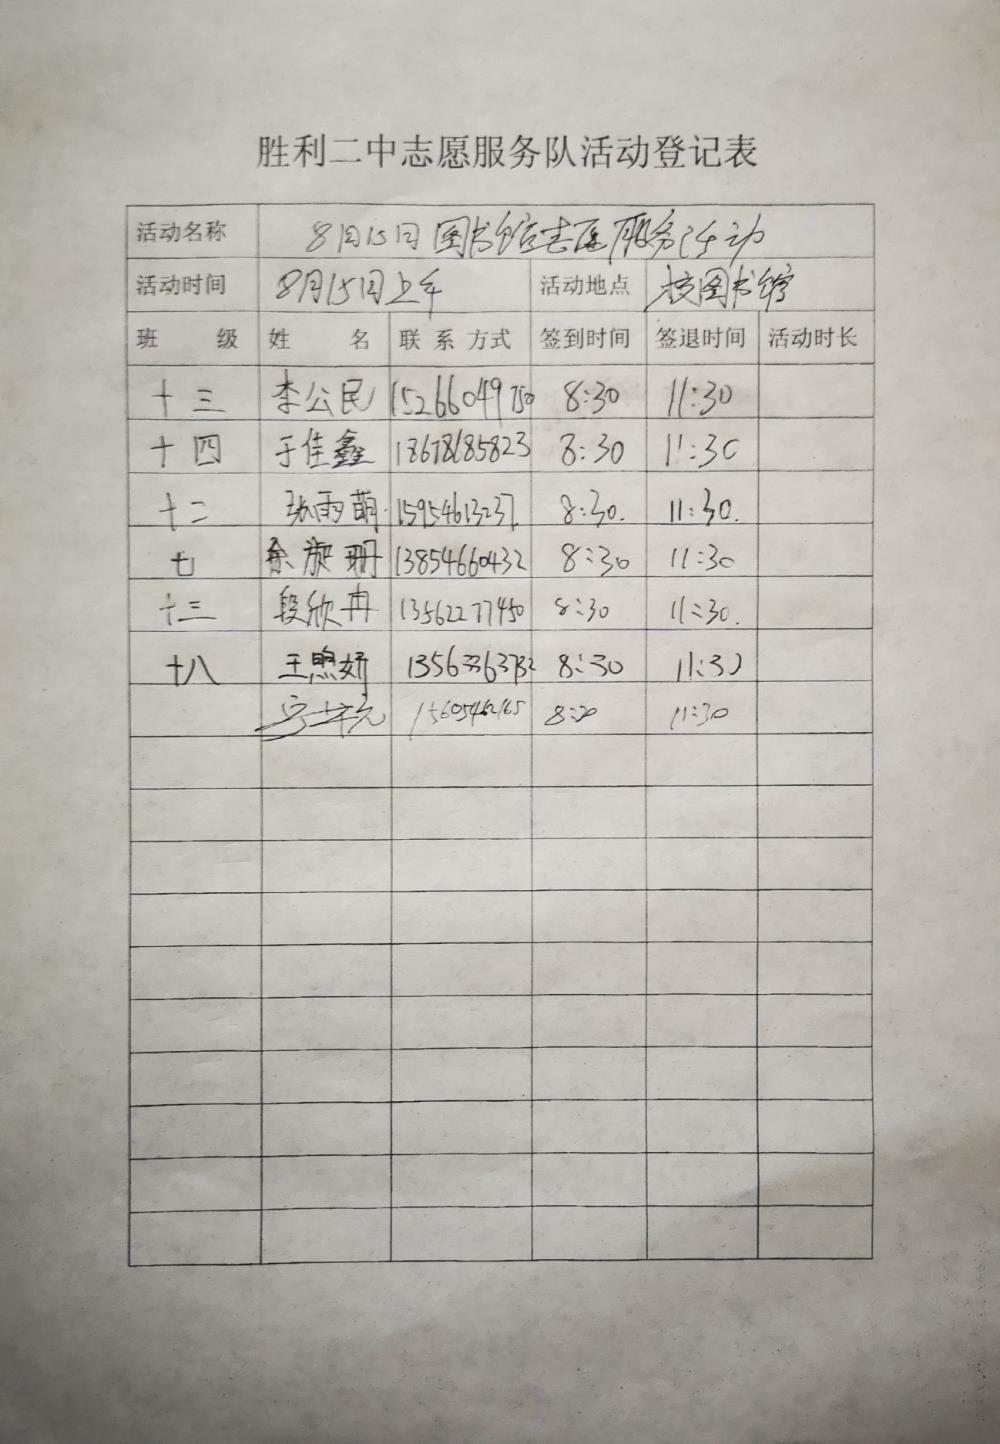 胜利二中志愿服务队活动登记表
活动名称 8月15日图书馆志愿服务活动
活动时间 8月15日上午 活动地点 校图书馆
班 级 姓 名 联系方式 签到时间 签退时间 活动时长
十三 李公民 15266049750 8:30 11:30
十四 于佳鑫 18678685823 8:30 11:30
十二 张雨萌 15954613237. 8:30. 11:30.
七 徐璇珊 13854660432 8:30 11:30
十三 段欣冉 13562277450 8:30 11:30.
十八 王煦妍 8:30 11:30
15605462165 8:30 11:30